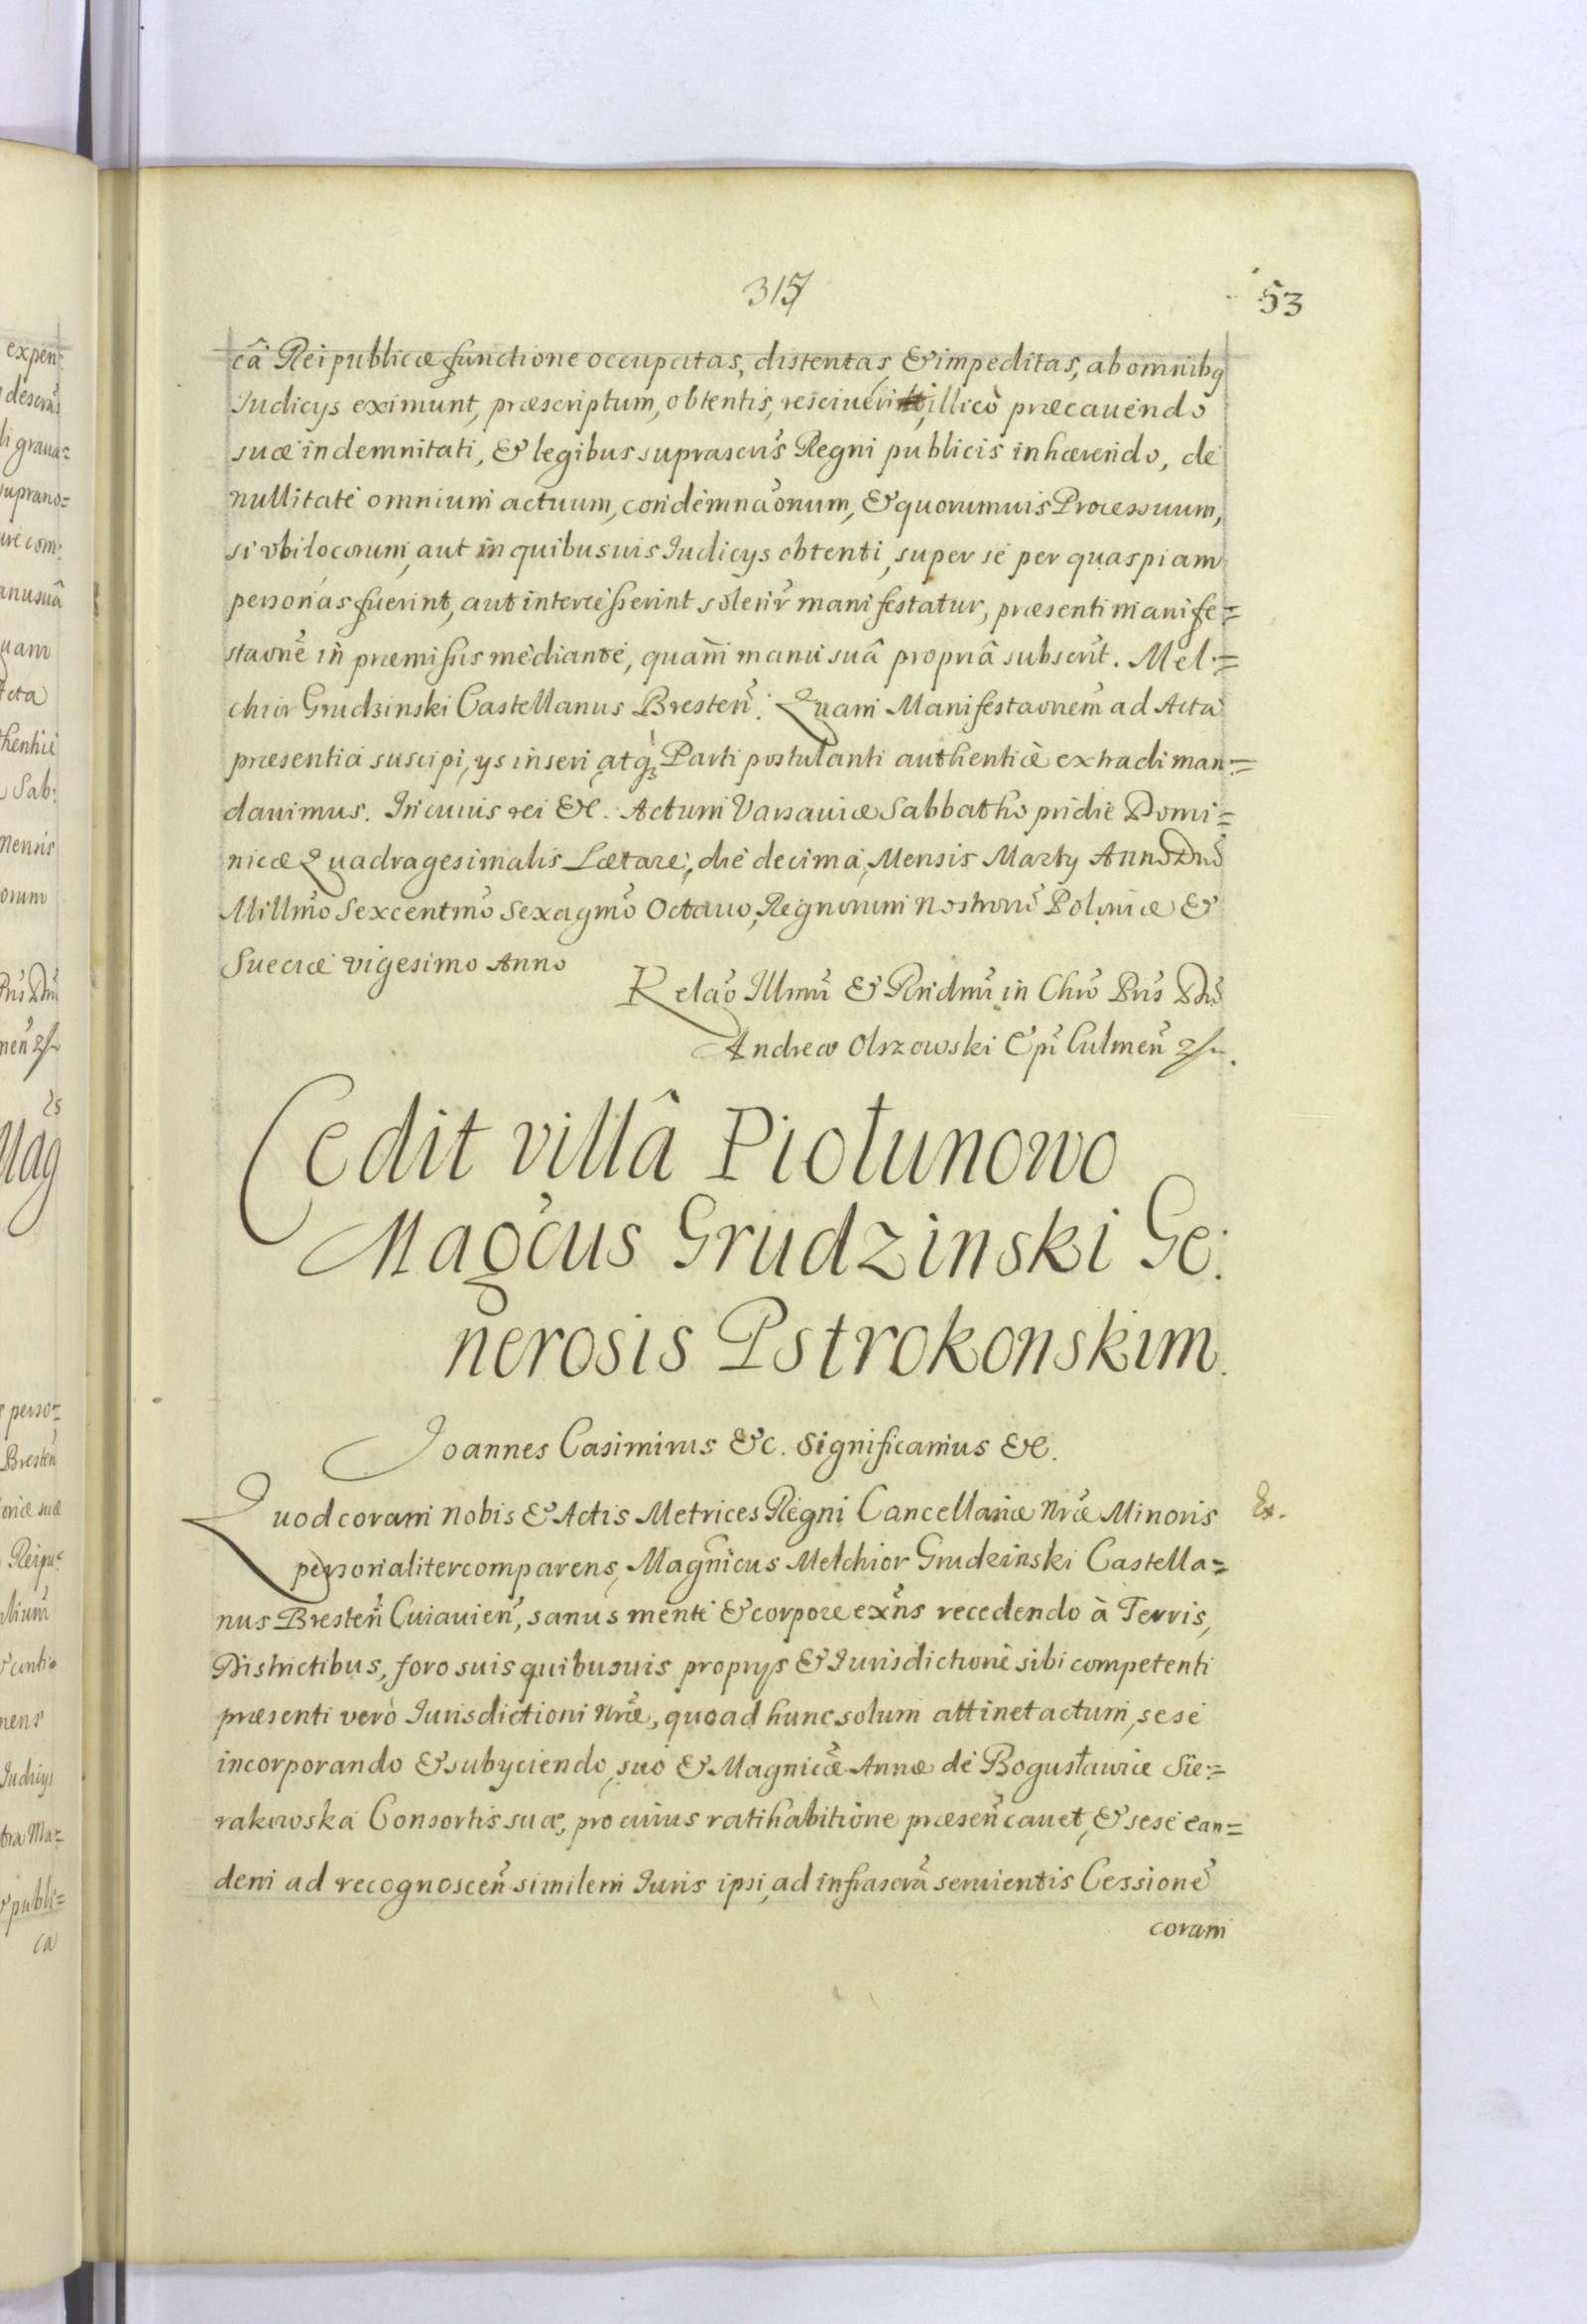 315
53
câ Reipublicæ functione occupatas, distentas, & impeditas, ab omnibq
Iudicys eximunt, præscriptum, obtentis, resciuerit, illicò præcauendo
suæ indemnitati, & legibus suprascris Regni publicis inhærendo, de
nullitate omnium actuum, condemnaonum, & quorumuis Processuum,
si vbi locorum, aut in quibusuis Iudicys obtenti, super se per quaspiam
personas fuerint, aut intercesserint solenr manifestatur, præsenti manife=
staone in præmissis mediante, quam manu suâ propriâ subscrit. Mel=
chior Grudzinski Castellanus Bresten. Quam Manifestaonem ad Acta
præsentia suscipi, ys inseri, atq; Parti postulanti authenticè extradi man=
dauimus. In cuius rei &c. Actum Varsauiæ Sabbatho pridie Domi=
nicæ Quadragesimalis Lætare, die decima, Mensis Marty Anno Dni
Millmo Sexcentmo Sexagmo Octauo, Regnorum nostroru Poloniæ &
Sueciæ vigesimo Anno
Relao Illmi & Rndmi in Chro Pris Dni
Andreæ Olszowski Epi Culmen
Cedit villâ Piołunowo
Magcus Grudzinski Ge:
nerosis Pstrokonskim.
Ioannes Casimirus &c. Significamus &c.
Quod coram nobis & Actis Metrices Regni Cancellariæ nræ Minoris
personaliter comparens, Magnicus Melchior Grudzinski Castella=
nus Bresten Cuiauien, sanus mente & corpore exns recedendo à Terris,
Districtibus, foro suis quibusuis proprys & Iurisdictione sibi competenti
præsenti verò Iurisdictioni nræ, quoad hunc solum attinet actum, sese
incorporando & subyciendo, suo & Magnicæ Annæ de Bogusławice Sie=
rakowska Consortis suæ, pro cuius ratihabitione præsen cauet, & sese ean=
dem ad recognoscen similem Iuris ipsi, ad infrascra seruientis Cessione
coram